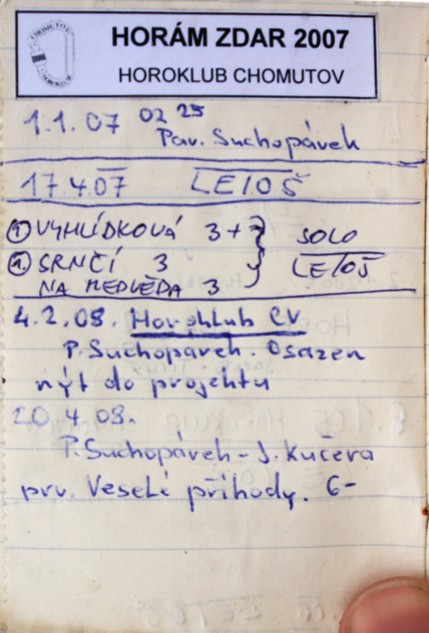 HORÁM ZDAR 2007
HOROKLUB CHOMUTOV
1.1.07 02 25
Pav. Suchopárek
17.4.07 LETOŠ
① VYHLÍDKOVÁ 3+ SOLO
① SRNČÍ 3 LETOŠ
NA MEDVĚDA 3
4.2.08. Horoklub CV
P. Suchopárek. Osazen
nýt do projektu
20.4.08.
P. Suchopárek - J. Kučera
prv. Veselé příhody. 6-